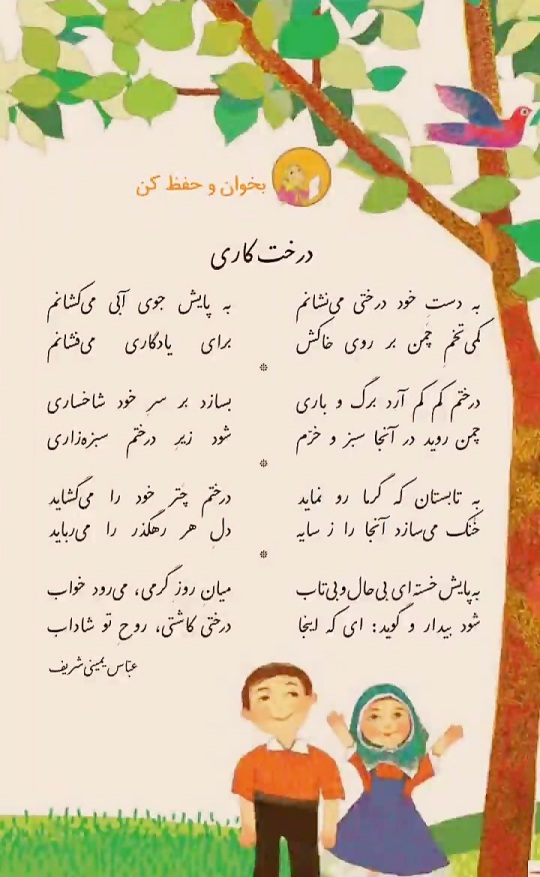 بخوان و حفظ کن
درخت‌کاری
به دستِ خود درختی می‌نشانم به پایش جوی آبی می‌کشانم
کمی تخمِ چمن بر روی خاکش برای یادگاری می‌فشانم
درختم کم کم آرد برگ و باری بسازد بر سرِ خود شاخساری
چمن روید در آنجا سبز و خرّم شود زیرِ درختم سبزه‌زاری
به تابستان که گرما رو نماید درختم چترِ خود را می‌گشاید
خنک می‌سازد آنجا را ز سایه دلِ هر رهگذر را می‌رباید
به پایش خسته‌ای بی‌حال و بی‌تاب میانِ روزِ گرمی، می‌رود خواب
شود بیدار و گوید: ای که اینجا درختی کاشتی، روحِ تو شاداب
عبّاس یمینی شریف